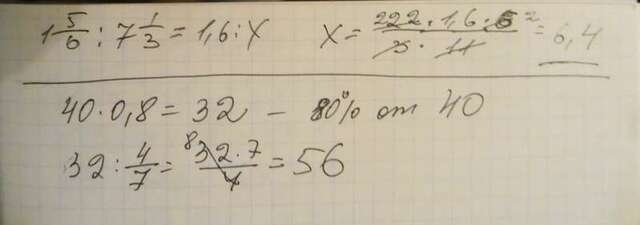 1 5/6 : 7 1/3 = 1,6 : x x = 222 · 1,6 · 6 2 / 3 · 11 = 6,4
40 · 0,8 = 32 – 80% от 40
32 : 4/7 = 8 32 · 7 / 4 = 56